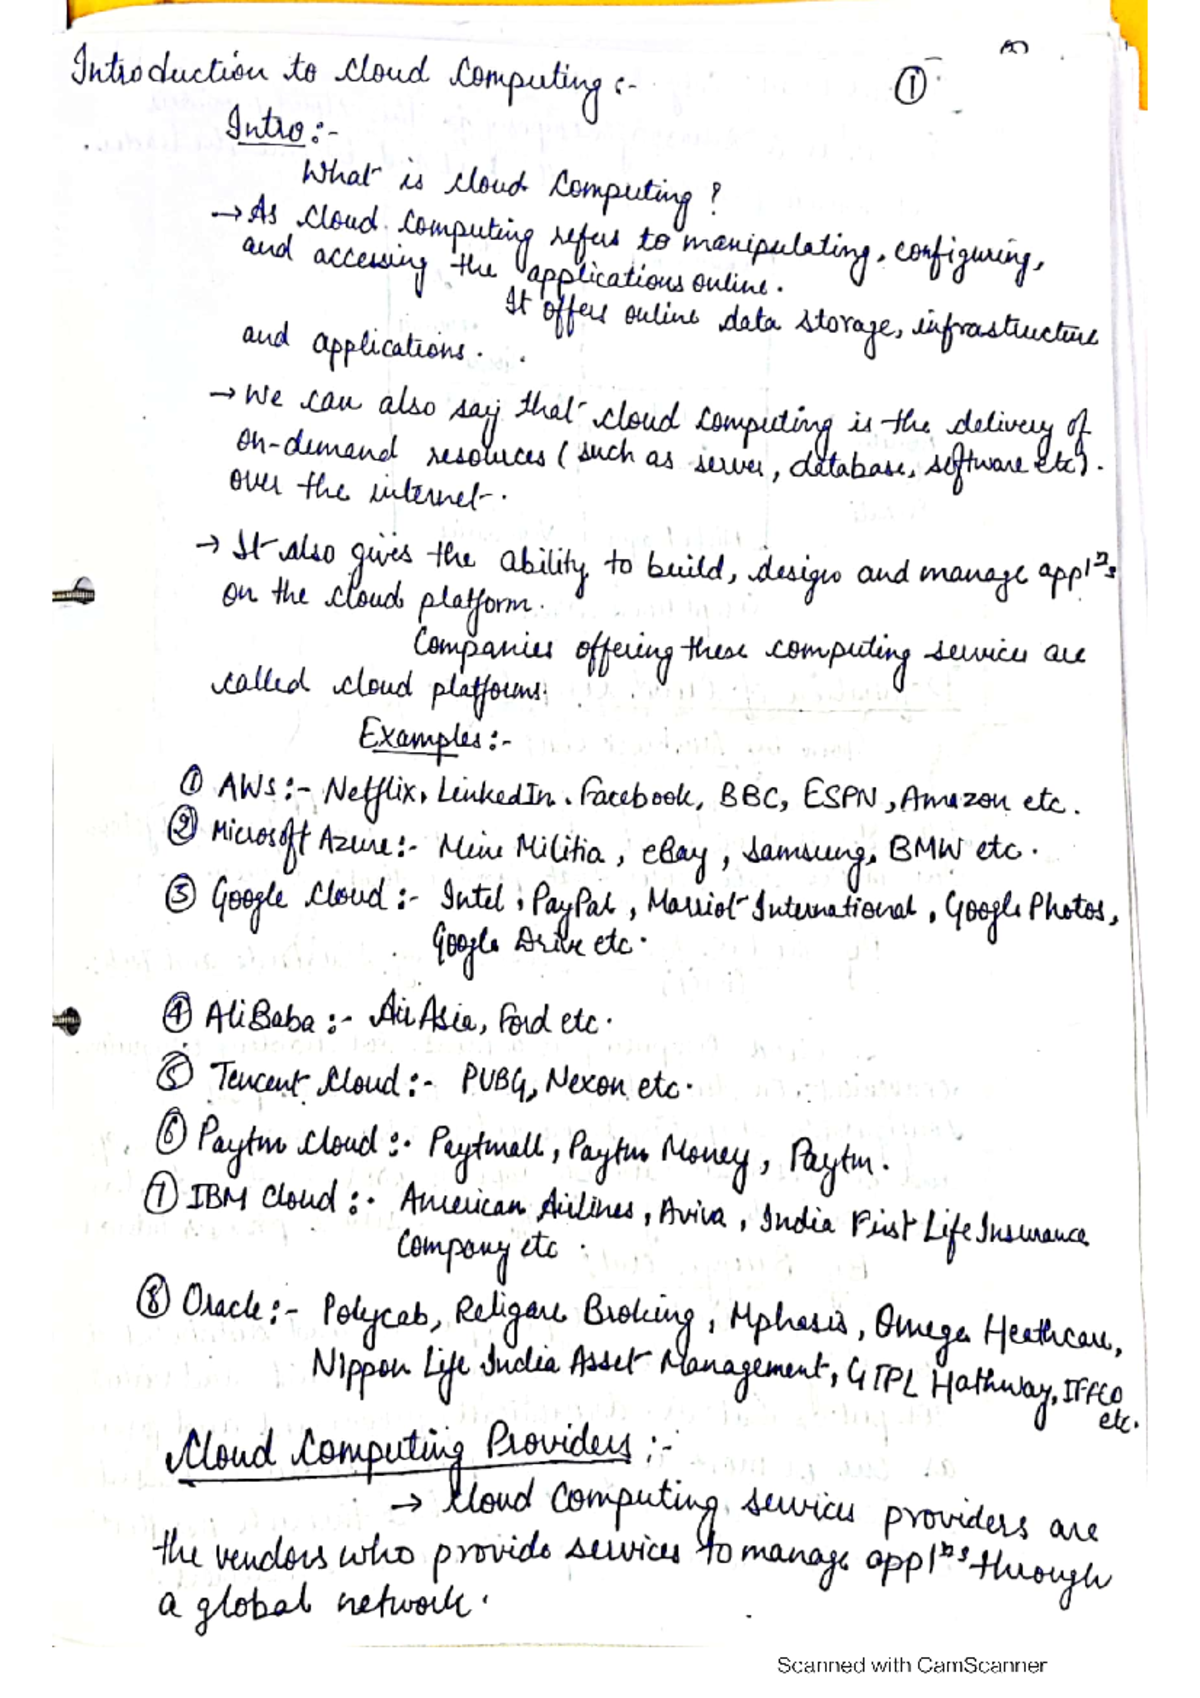 Introduction to Cloud Computing :-
①
Intro :-
What is Cloud Computing ?
→ As Cloud Computing refers to manipulating, configuring,
and accessing the applications online.
It offers online data storage, infrastructure
and applications.
→ We can also say that cloud computing is the delivery of
on-demand resources ( such as server, database, software etc).
over the internet.
→ It also gives the ability to build, design and manage applⁿs
on the cloud platform.
Companies offering these computing services are
called cloud platforms.
Examples :-
① AWS :- Netflix, LinkedIn, Facebook, BBC, ESPN, Amazon etc.
② Microsoft Azure :- Mini Militia, eBay, Samsung, BMW etc.
③ Google Cloud :- Intel, PayPal, Marriot International, Google Photos,
Google Drive etc.
④ AliBaba :- Air Asia, Ford etc.
⑤ Tencent Cloud :- PUBG, Nexon etc.
⑥ Paytm Cloud :- Paytmall, Paytm Money, Paytm.
⑦ IBM Cloud :- American Airlines, Aviva, India First Life Insurance
Company etc.
⑧ Oracle :- Polycab, Religare Broking, Mphasis, Omega Heathcare,
Nippon Life India Asset Management, GTPL Hathway, IFFCO
etc.
Cloud Computing Providers :-
→ Cloud Computing services providers are
the vendors who provide services to manage applⁿs through
a global network.
Scanned with CamScanner